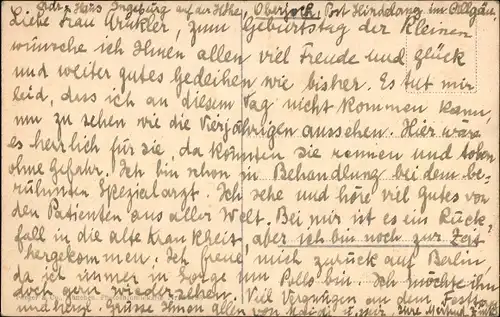 Adr. Haus Ingeburg auf der Höhe, Oberjoch, Post Hindelang im Allgäu
Liebe Frau zum Geburtstag der Kleinen
wünsche ich Ihnen allen viel Freude und Glück
und weiter gutes Gedeihen wie bisher. Es tut mir
leid, dass ich an diesem Tag nicht kommen kann,
um zu sehen wie die Vierjährigen aussehen. Hier wäre
es herrlich für sie, da könnten sie rennen und toben
ohne Gefahr. Ich bin schon in Behandlung bei dem be-
rühmten Spezialarzt. Ich sehe und höre viel Gutes von
den Patienten aus aller Welt. Bei mir ist es ein Rück-
fall in die alte Krankheit, aber ich bin noch zur Zeit
hergekommen. Ich freue mich zurück auf Berlin
da ich immer in Sorge um bin. Ich möchte ihn
doch gern wiedersehen. Viel Vergnügen an dem Festtag
und herzl. Grüsse Ihnen allen von